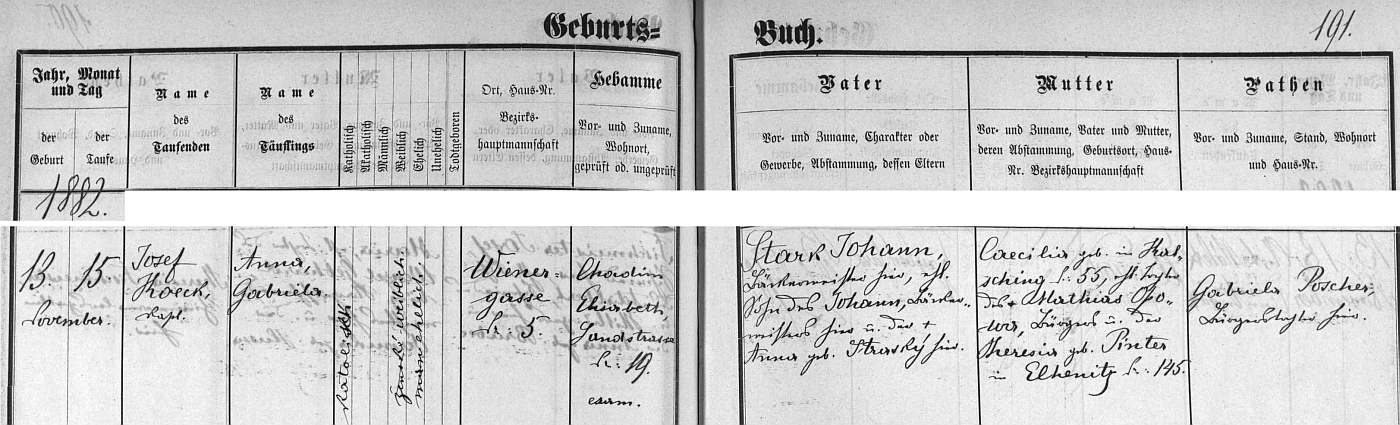 Geburts=
Buch.
191.
Jahr, Monat
und Tag
der
Geburt
der
Taufe
Name
des
Taufenden
Name
des
Täuflings
Katholisch
Akatholisch
Männlich
Weiblich
Ehelich
Unehelich
Todtgeboren
Ort, Haus-Nr.
Bezirks-
hauptmannschaft
Hebamme
Vor- und Zuname,
Wohnort,
geprüft od. ungeprüft
Vater
Vor- und Zuname, Charakter oder
Gewerbe, Abstammung, dessen Eltern
Mutter
Vor- und Zuname, Vater und Mutter,
deren Abstammung, Geburtsort, Haus-
Nr. Bezirkshauptmannschaft
Pathen
Vor- und Zuname, Stand, Wohnort
und Haus-Nr.
1882.
13. 15
November.
Josef
Koeck,
Kapl.
Anna,
Gabriela.
katolisch
ženské weiblich.
manž ehelich
Wiener=
gasse
Nr: 5.
Elisabeth,
Landstrasse
Nr: 19.
exam.
Stark Johann,
Bäckermeister hier, ehl.
Sohn des Johann, Bäcker-
meisters hier u. der +
Anna geb. Straský hier.
Caecilia geb. in Kal-
sching Nr: 55, ehl. Tochter
des + Mathias Opo-
wa, Bürgers u. der
Theresia geb. Pinter
in Elhenitz Nr: 145.
Gabriela Poscher
Bürgerstochter hier.